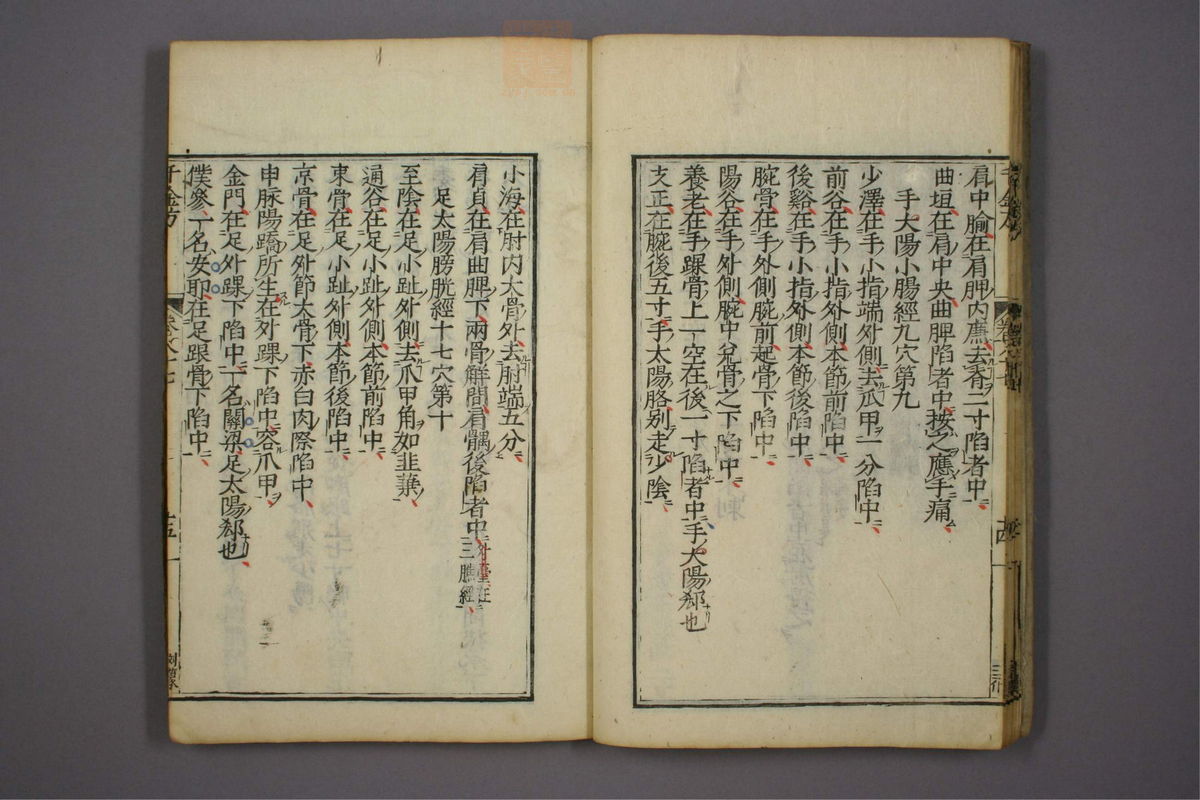 肩中腧在肩胛內廉去脊二寸陷者中
曲垣在肩中央曲脾陷者中按之應手痛
手太陽小腸經九穴第九
少澤在手小指端外側去爪甲一分陷中
前谷在手小指外側本節前陷中
後谿在手小指外側本節後陷中
腕骨在手外側腕前起骨下陷中
陽谷在手外側腕中兌骨之下陷中
養老在手踝骨上一空在後一寸陷者中手太陽郄也
支正在腕後五寸手太陽胳別走少陰
小海在肘内大骨外去肘端五分
肩貞在肩曲胛下兩骨解間肩髃後陷者中外臺在三膲經
足太陽膀胱經十七穴第十
至陰在足小趾外側去爪甲角如韭葉
通谷在足小趾外側本節前陷中
束骨在足小趾外側本節後陷中
京骨在足外節大骨下赤白肉際陷中
申脉陽蹻所生在外踝下陷中容爪甲
金門在足外踝下陷中一名關梁足太陽郄也
僕參一名安耶在足跟骨下陷中
千金方